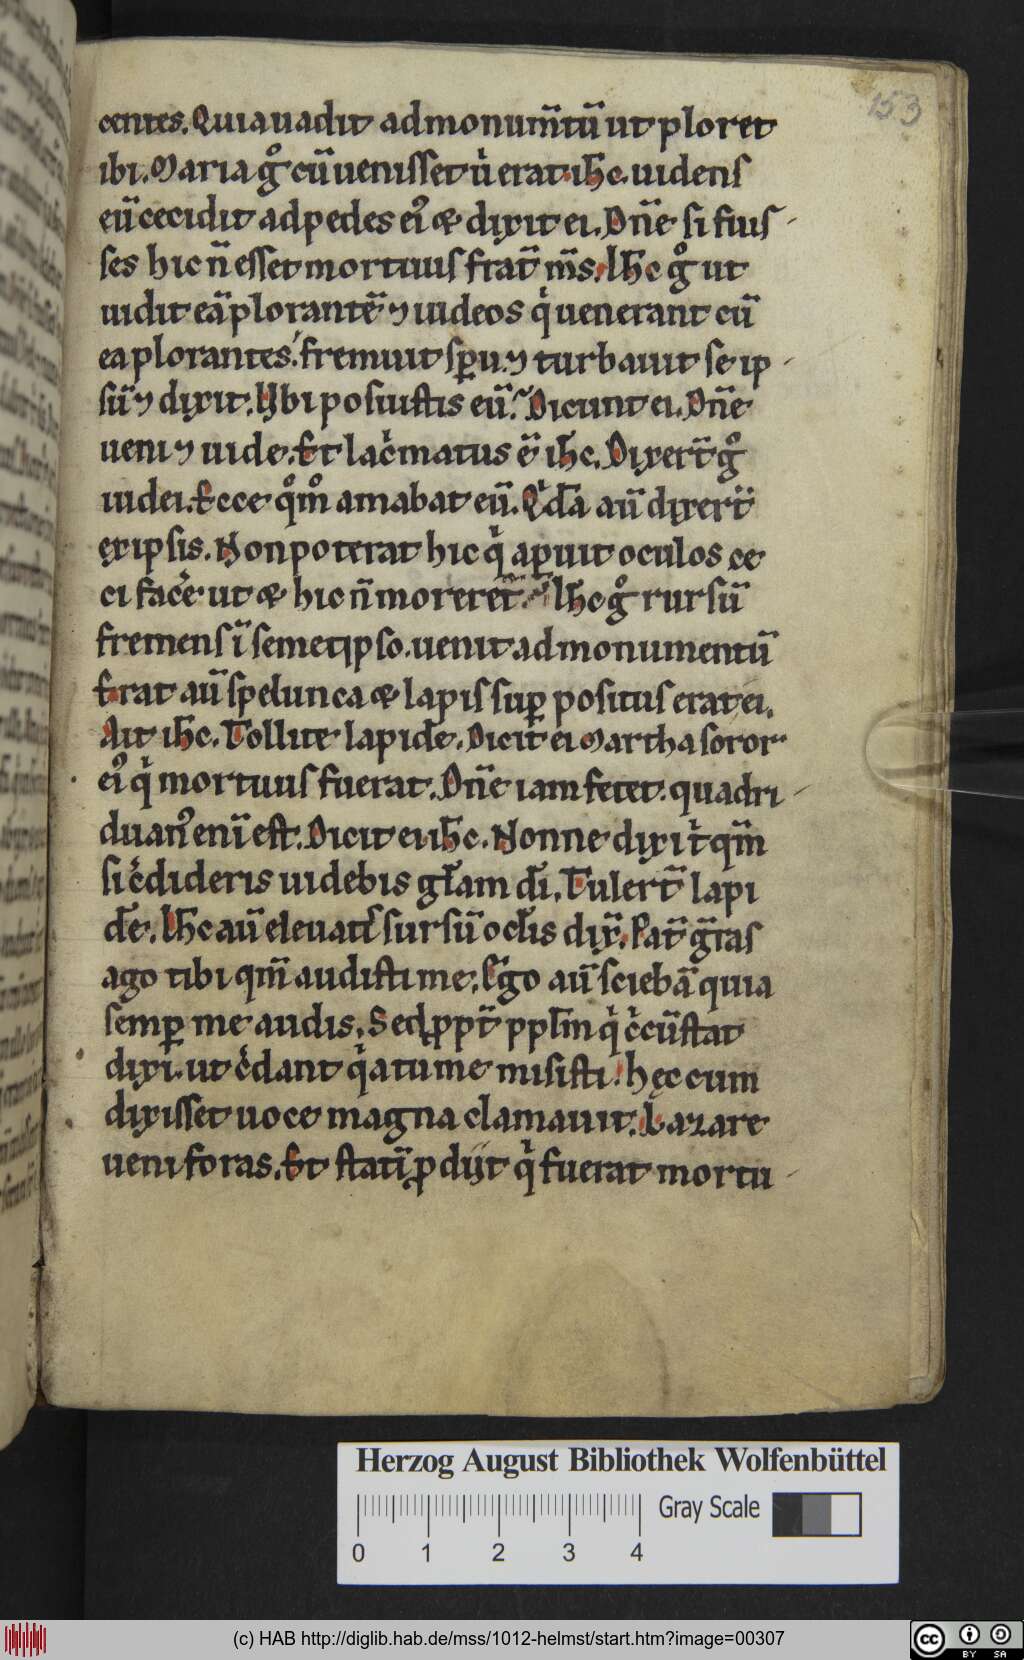 153
centes. Quia uadit ad monum̄tū ut ploret
ibi. Maria gͦ cū uenisset uͥ erat ih̄c. uidens
eū cecidit ad pedes eiꝰ & dixit ei. Dn̄e si fuis-
ses hic n̄ esset mortuus frat̄ m̄s. Ih̄c gͦ ut
uidit eā plorantē ⁊ iudeos qͥ uenerant cū
ea plorantes. fremuit sp̄u. ⁊ turbauit se ip-
sū ⁊ dixit. Vbi posuistis eū. Dicunt ei. Dn̄e
ueni ⁊ uide. Et lacͥmatus ē ih̄c. Dixert̄ gͦ
iudei. Ecce qͦmͦ amabat eū. Qͥda̅ aū dixert̄
ex ipsis. Non poterat hic qͥ apuit oculos ce
ci facͤe ut & hic n̄ moreret̄. Ih̄c gͦ rursū
fremens ī semetipso. uenit ad monumentū
Erat aū spelunca & lapis suꝑ positus erat ei.
Ait ih̄c. Tollite lapide̅. Dicit ei Martha soror
eiꝰ qͥ mortuus fuerat. Dn̄e iam fetet. quadri-
duanꝰ enī est. Dicit ei ih̄c. Nonne dixi tͥ qm̄
si cͥdideris uidebis gl̄am dī. Tulert̄ lapi
de̅. Ih̄c aū eleuatͥs sursū ocl̄is dix̄. Pat̄ gr̄as
ago tibi qm̄ audisti me. Ego aū sciebā quia
semꝑ me audis. Sed ꝓpt̄ ppl̄m qͥ cͥcūstat
dixi. ut cͥdant qͥa tu me misisti. hęc cum
dixisset uoce magna clamauit. Lazare
ueni foras. Et statī ꝓdijt qͥ fuerat mortu-
Herzog August Bibliothek Wolfenbüttel
Gray Scale
0 1 2 3 4
(c) HAB http://diglib.hab.de/mss/1012-helmst/start.htm?image=00307
cc BY SA